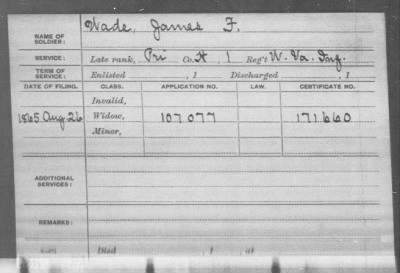 NAME OF SOLDIER: Wade, James F.
SERVICE: Late rank, Pri Co. H, 1 Reg't W. Va. Inf.
TERM OF SERVICE: Enlisted , 1 Discharged , 1
DATE OF FILING. CLASS. APPLICATION NO. LAW. CERTIFICATE NO.
Invalid,
1865 Aug 26 Widow, 107077 171660
Minor,
ADDITIONAL SERVICES:
REMARKS:
Died , 1 , at